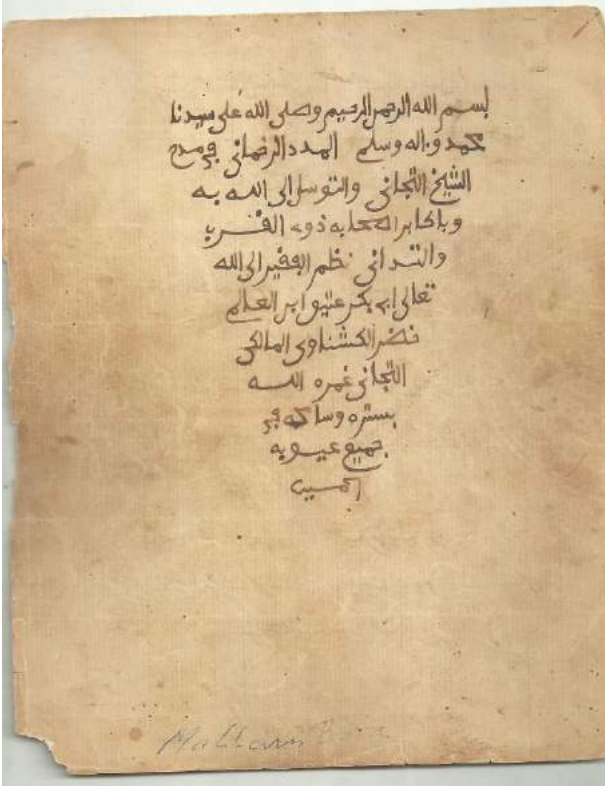 بسم الله الرحمن الرحيم وصلى الله على سيدنا
محمد وءاله وسلم المدد الرحماني في مدح
الشيخ التجاني والتوسل إلى الله به
وبأكابر أصحابه ذوي القرب
والتداني نظم الفقير إلى الله
تعالى أبي بكر عتيق ابن العالم
خضر الكشناوي المالكي
التجاني غمره الله
بستره وسامحه في
جميع عيوبه
ءامين
Mallam